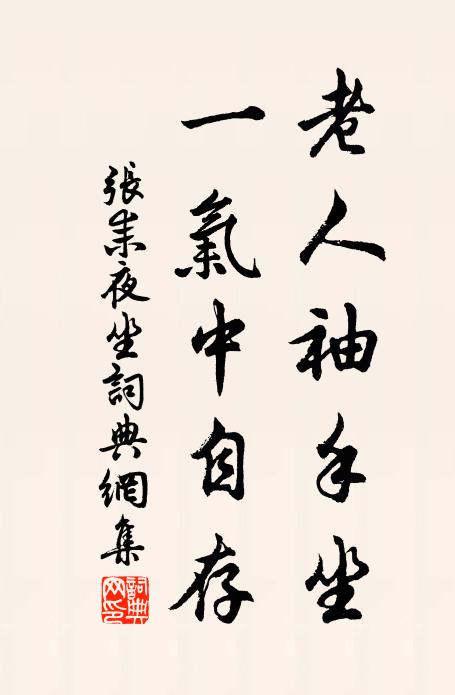 老人袖手坐
一氣中自存
張耒夜坐詞典網集
詞典網印